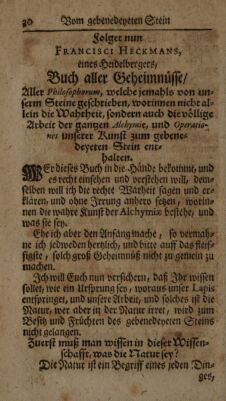 20 Vom gebenedeyeten Stein
Folget nun
FRANCISCI HECKMANS,
eines Heidelbergers,
Buch aller Geheimnüsse/
Aller Philosophorum, welche jemahls von un-
serm Steine geschrieben, worinnen nicht al-
lein die Wahrheit, sondern auch die völlige
Arbeit der gantzen Alchymie, und Operatio-
nes unserer Kunst zum gebene-
deyeten Stein ent-
halten.
WEr dieses Buch in die Hände bekommt, und
es recht einsehen und verstehen will, dem-
selben will ich die rechte Warheit sagen und er-
klären, und ohne Irrung anhero setzen, worin-
nen die wahre Kunst der Alchymiæ bestehe, und
was sie sey.
Ehe ich aber den Anfang mache, so vermah-
ne ich jedweden hertzlich, und bitte auff das fleis-
sigste, solch groß Geheimnüß nicht zu gemein zu
machen.
Ich will Euch nun versichern, daß Ihr wissen
sollet, wie ein Ursprung sey, woraus unser Lapis
entspringet, und unsere Arbeit, und solches ist die
Natur, wer aber in der Natur irret, wird zum
Besitz und Früchten des gebenedeyeten Steins
nicht gelangen.
Zuerst muß man wissen in dieser Wissen-
schafft, was die Natur sey?
Die Natur ist ein Begriff eines jeden Din-
ges,